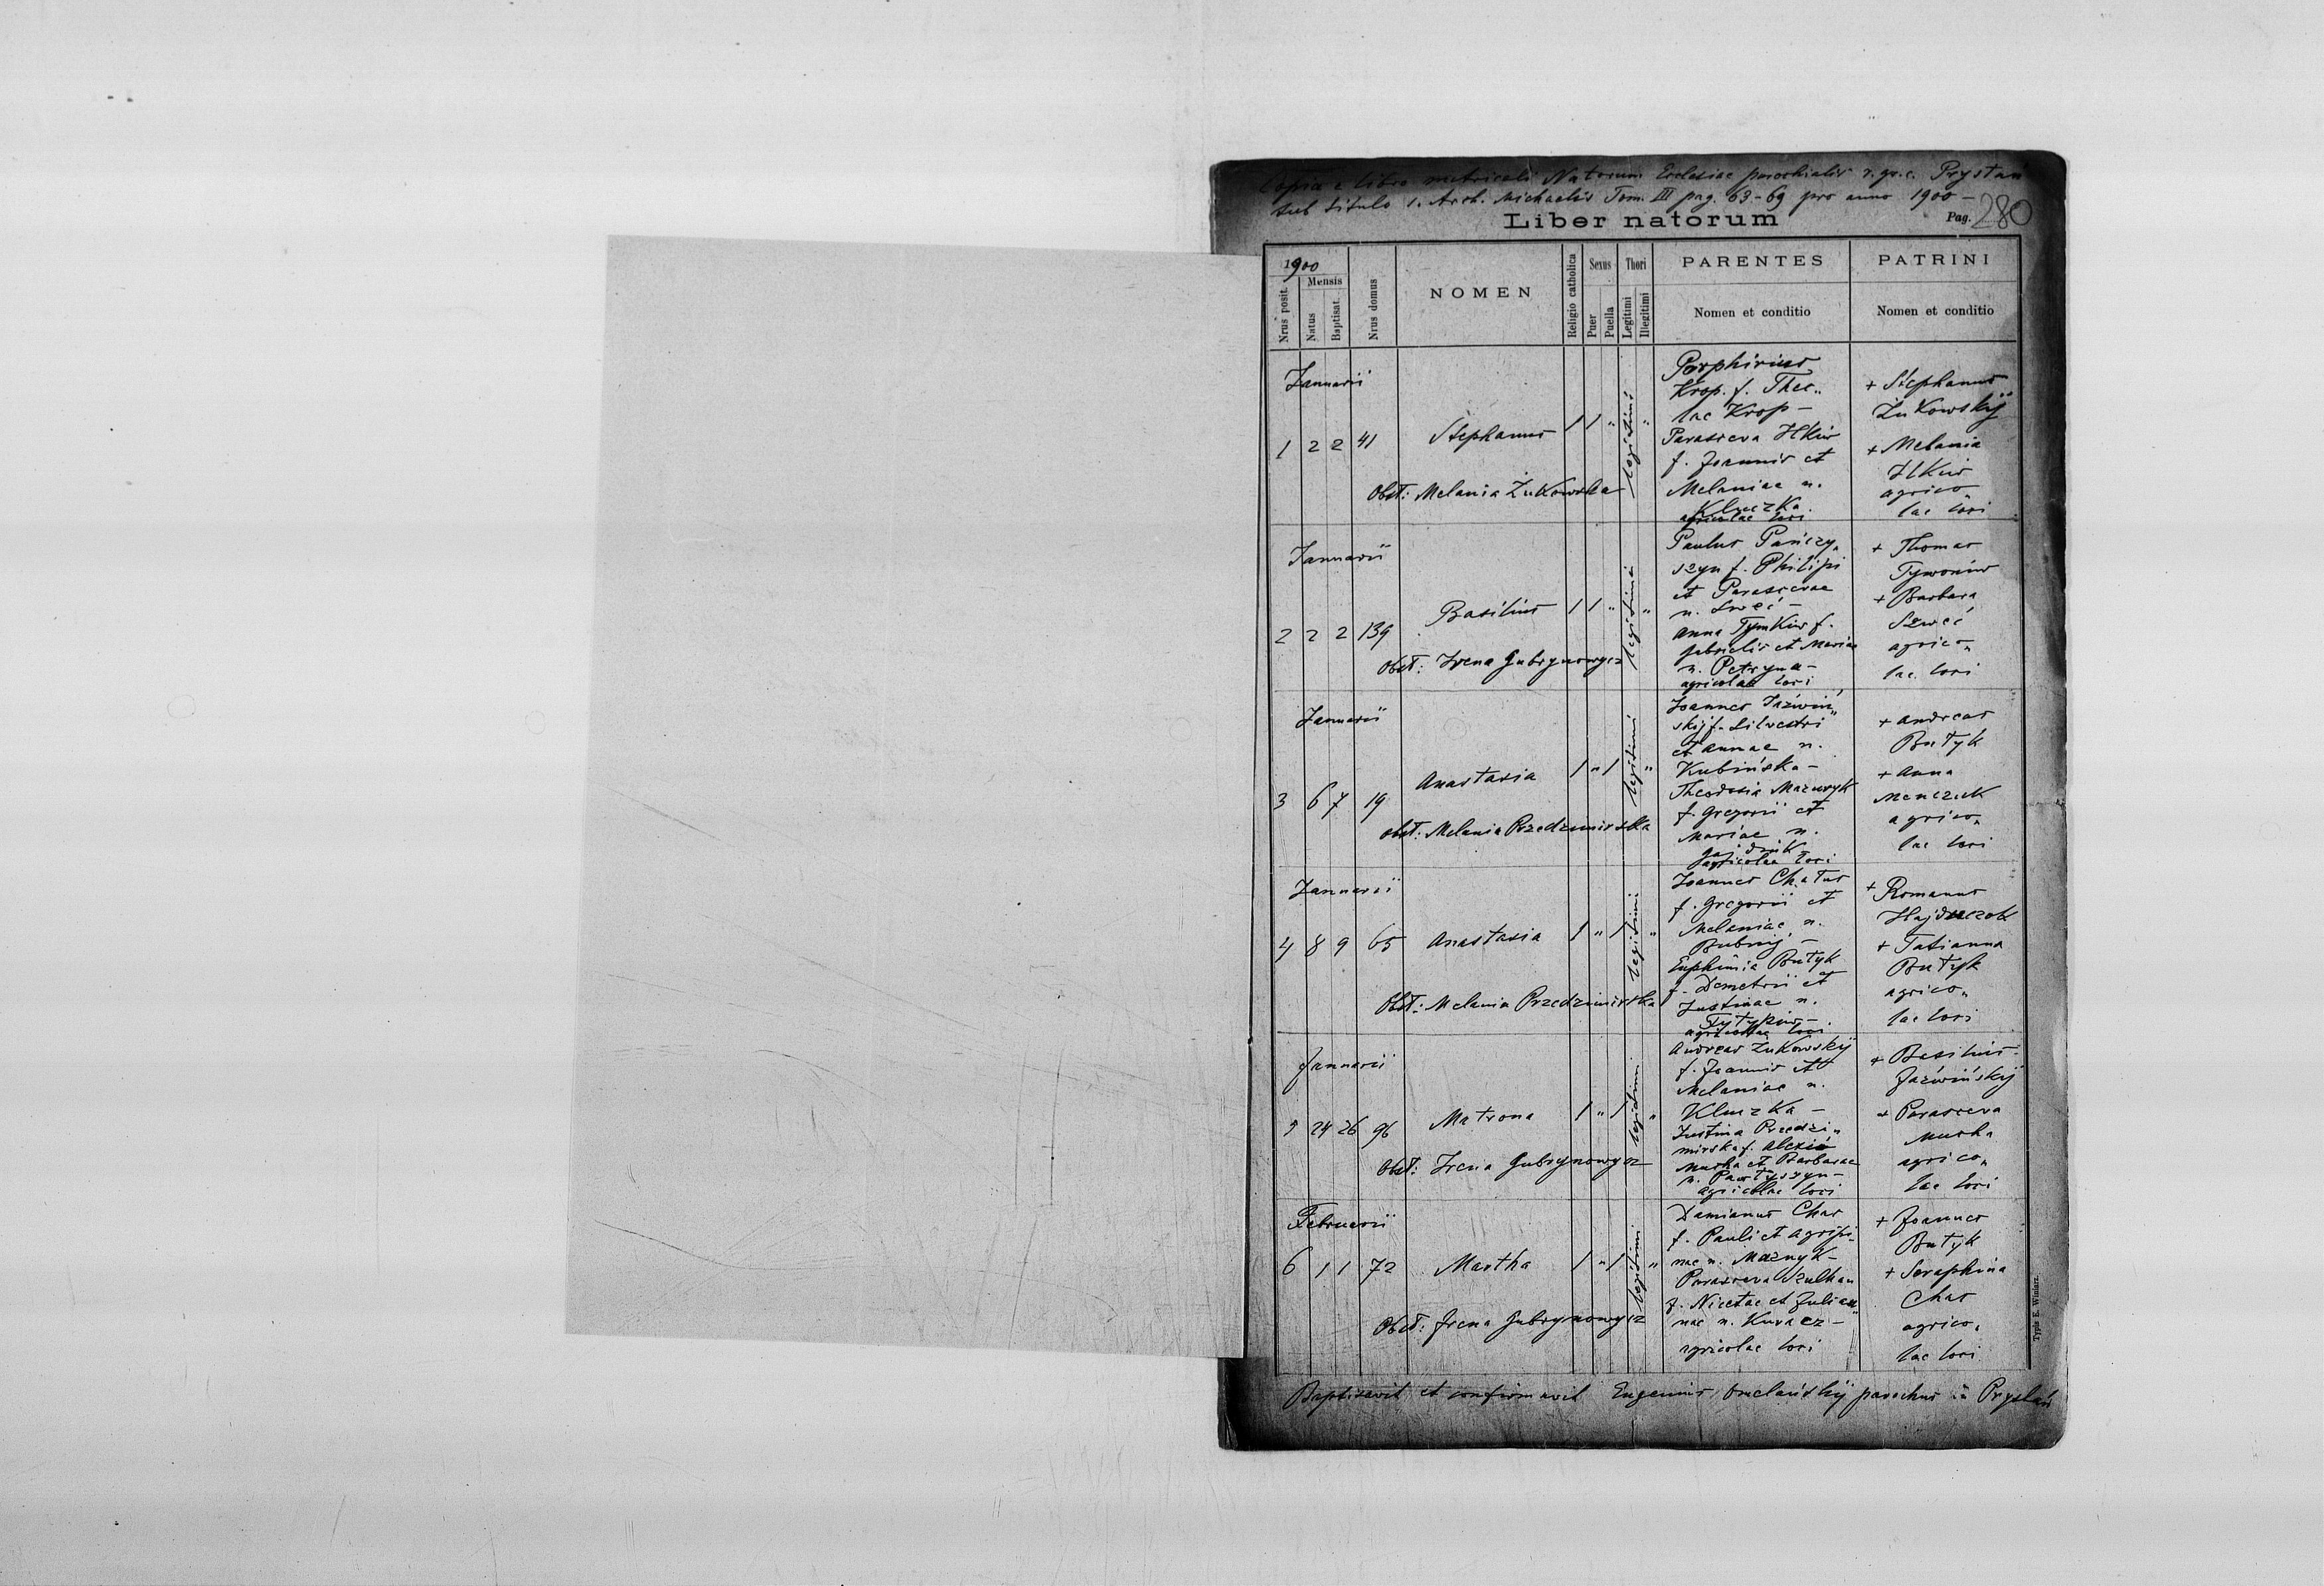 Copia e libro metricali Natorum Ecclesiae parochialis r. gr. c. Prystań
sub titulo S. Arch. Michaelis Tom. III pag. 63-69 pro anno 1900 -
Liber natorum
Pag. 280
1900
Nrus posit.
Mensis
Natus
Baptisat.
Nrus domus
NOMEN
Religio catholica
Sexus
Puer
Puella
Thori
Legitimi
Illegitimi
PARENTES
Nomen et conditio
PATRINI
Nomen et conditio
Januarii
1 2 2 41 Stephanus 1 1 " legitimi "
Obst: Melania Żukowska
Porphirius
Krop. f. Thec„
lae Krop -
Parasceva Ilkiw
f. Joannis et
Melaniae n.
Kluczka.
agricolae loci
+ Stephanus
Żukowskij
+ Melania
Ilkiw
agrico„
lae loci
Januarii
2 2 2 139 Basilius 1 1 " legitimi "
Obst: Irena Gubrynowycz
Paulus Pańczy„
szyn f. Philipi
et Parascevae
n. Szweć -
Anna Tymkiw f.
Gabrielis et Mariae
n. Petryna -
agricolae loci
+ Thomas
Tywoniw
+ Barbara
Szweć
agrico„
lae loci
Januarii
3 6 7 19 Anastasia 1 " 1 legitimi "
Obst: Melania Przedzimirska
Joannes Jaźwiń„
skij f. Silvestri
et Annae n.
Kubińska -
Theodosia Mazuryk
f. Gregorii et
Mariae n.
Gajdziuk
agricolae loci
+ Andreas
Butyk
+ Anna
Menczuk
agrico„
lae loci
Januarii
4 8 9 65 Anastasia 1 " 1 legitimi "
Obst: Melania Przedzimirska
Joannes Chatus
f. Gregorii et
Melaniae n.
Bubnij -
Euphimia Butyk
f. Demetrii et
Justinae n.
agricolae loci
+ Romanus
Hajduczok
+ Tatianna
Butyk
agrico„
lae loci
Januarii
5 24 26 96 Matrona 1 " 1 legitimi "
Obst: Irena Gubrynowycz
Andreas Żukowskij
f. Joannis et
Melaniae n.
Kluczka -
Justina Przedzi„
mirska f. Alexii
Mucha et Barbarae
n. Pawłyszyn -
agricolae loci
+ Basilius
Jaźwińskij
+ Parasceva
Mucha
agrico„
lae loci
Februarii
6 1 1 72 Martha 1 " 1 legitimi "
Obst: Irena Gubrynowycz
Damianus Chas
f. Pauli et Agripi„
nae n. Maznyk -
Parasceva Szulhan
f. Nicetae et Julian„
nae n. Kuracz -
agricolae loci
+ Joannes
Butyk
+ Seraphina
Chas
agrico„
lae loci
Typis E. Winiarz.
Baptisavit et confirmavit Eugenius Omelańskij parochus in Prystań